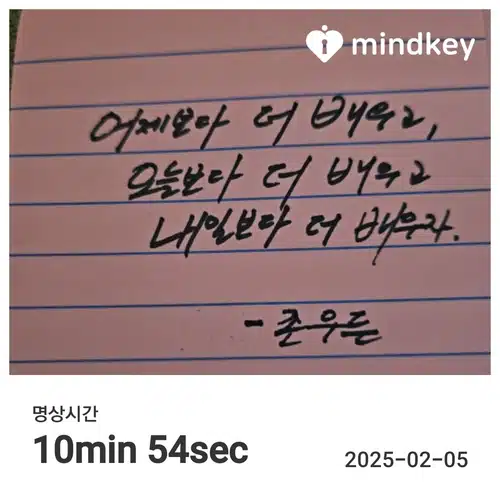 mindkey
어제보다 더 배우고,
오늘보다 더 배우고
내일보다 더 배우자.
- 존우든
명상시간
10min 54sec
2025-02-05